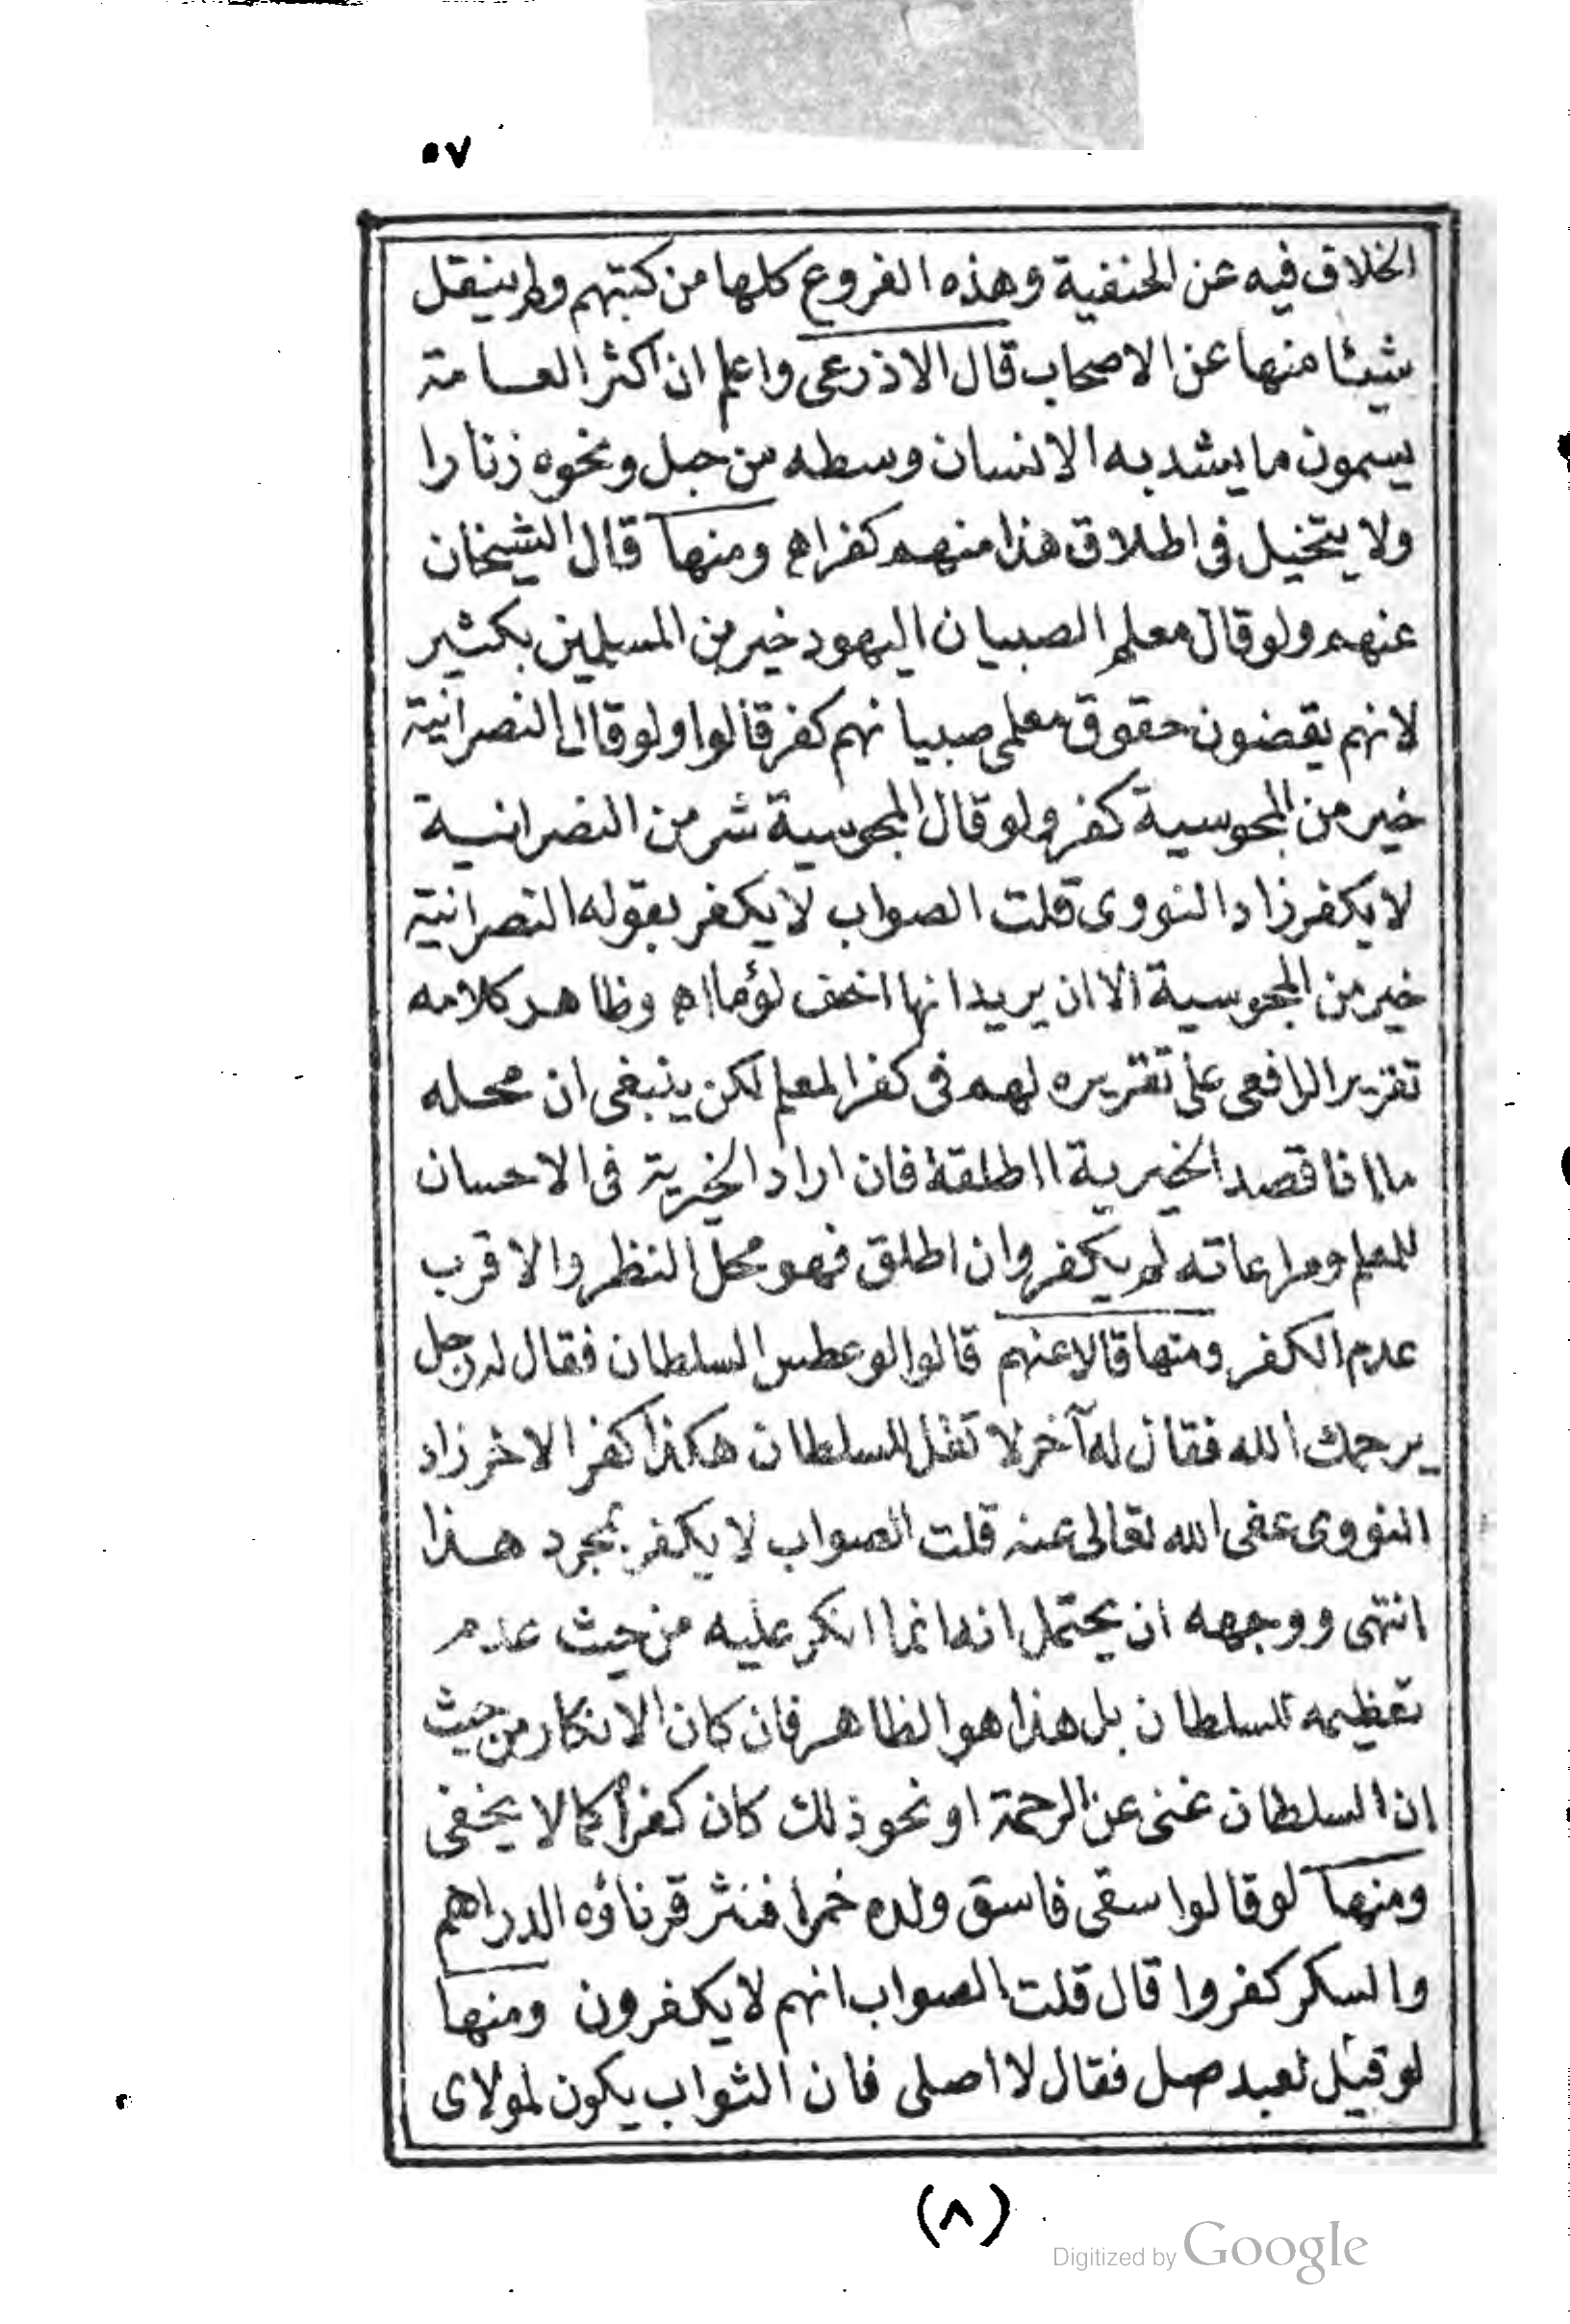 ٥٧
الخلاف فيه عن الحنفية وهذه الفروع كلها من كتبهم ولم ينقل
شيئا منها عن الاصحاب قال الاذرعى واعلم ان اكثر العامة
يسمون ما يشد به الانسان وسطه من حبل ونحوه زنارا
ولا يتخيل فى اطلاق هذا منهم كفر اه ومنها قال الشيخان
عنهم ولو قال معلم الصبيان اليهود خير من المسلمين بكثير
لانهم يقضون حقوق معلمى صبيانهم كفر قالوا ولو قال النصرانية
خير من المجوسية كفر ولو قال المجوسية شر من النصرانية
لا يكفر زاد النووى قلت الصواب لا يكفر بقوله النصرانية
خير من المجوسية الا ان يريد انها اخف لؤما اه وظاهر كلامه
تقرير الرافعى على تقريره لهم فى كفر المعلم لكن ينبغى ان محله
ما اذا قصد الخيرية المطلقة فان اراد الخيرية فى الاحسان
للمعلم ومراعاته لم يكفر وان اطلق فهو محل النظر والاقرب
عدم الكفر ومنها قالا عنهم قالوا لو عطس السلطان فقال له رجل
يرحمك الله فقال له آخر لا تقل للسلطان هكذا كفر الاخر زاد
النووى عفى الله تعالى عنه قلت الصواب لا يكفر بمجرد هذا
انتهى ووجهه ان يحتمل انه انما انكر عليه من حيث عدم
تعظيمه للسلطان بل هذا هو الظاهر فان كان الانكار من حيث
ان السلطان غنى عن الرحمة او نحو ذلك كان كفرا كما لا يخفى
ومنها لو قالوا سقى فاسق ولده خمرا فنثر قرناؤه الدراهم
والسكر كفروا قال قلت الصواب انهم لا يكفرون ومنها
لو قيل لعبد صل فقال لا اصلى فان الثواب يكون لمولاى
(٨)
Digitized by Google